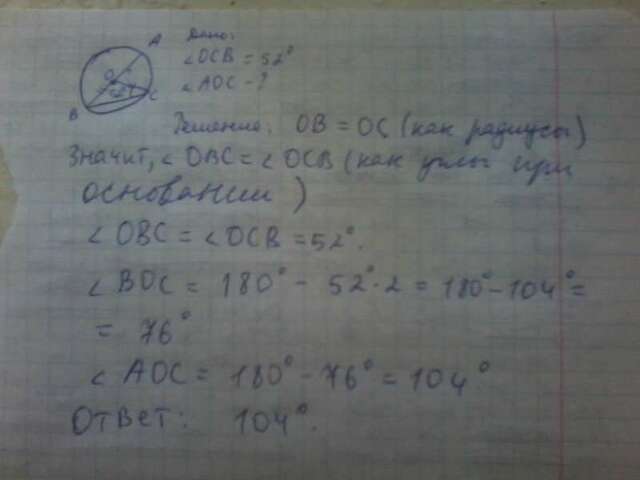 A
B
C
O
52°
Дано:
∠OCB = 52°
∠AOC - ?
Решение: OB = OC (как радиусы)
Значит, ∠OBC = ∠OCB (как углы при
основании)
∠OBC = ∠OCB = 52°.
∠BOC = 180° - 52°·2 = 180° - 104° =
= 76°
∠AOC = 180° - 76° = 104°
Ответ: 104°.